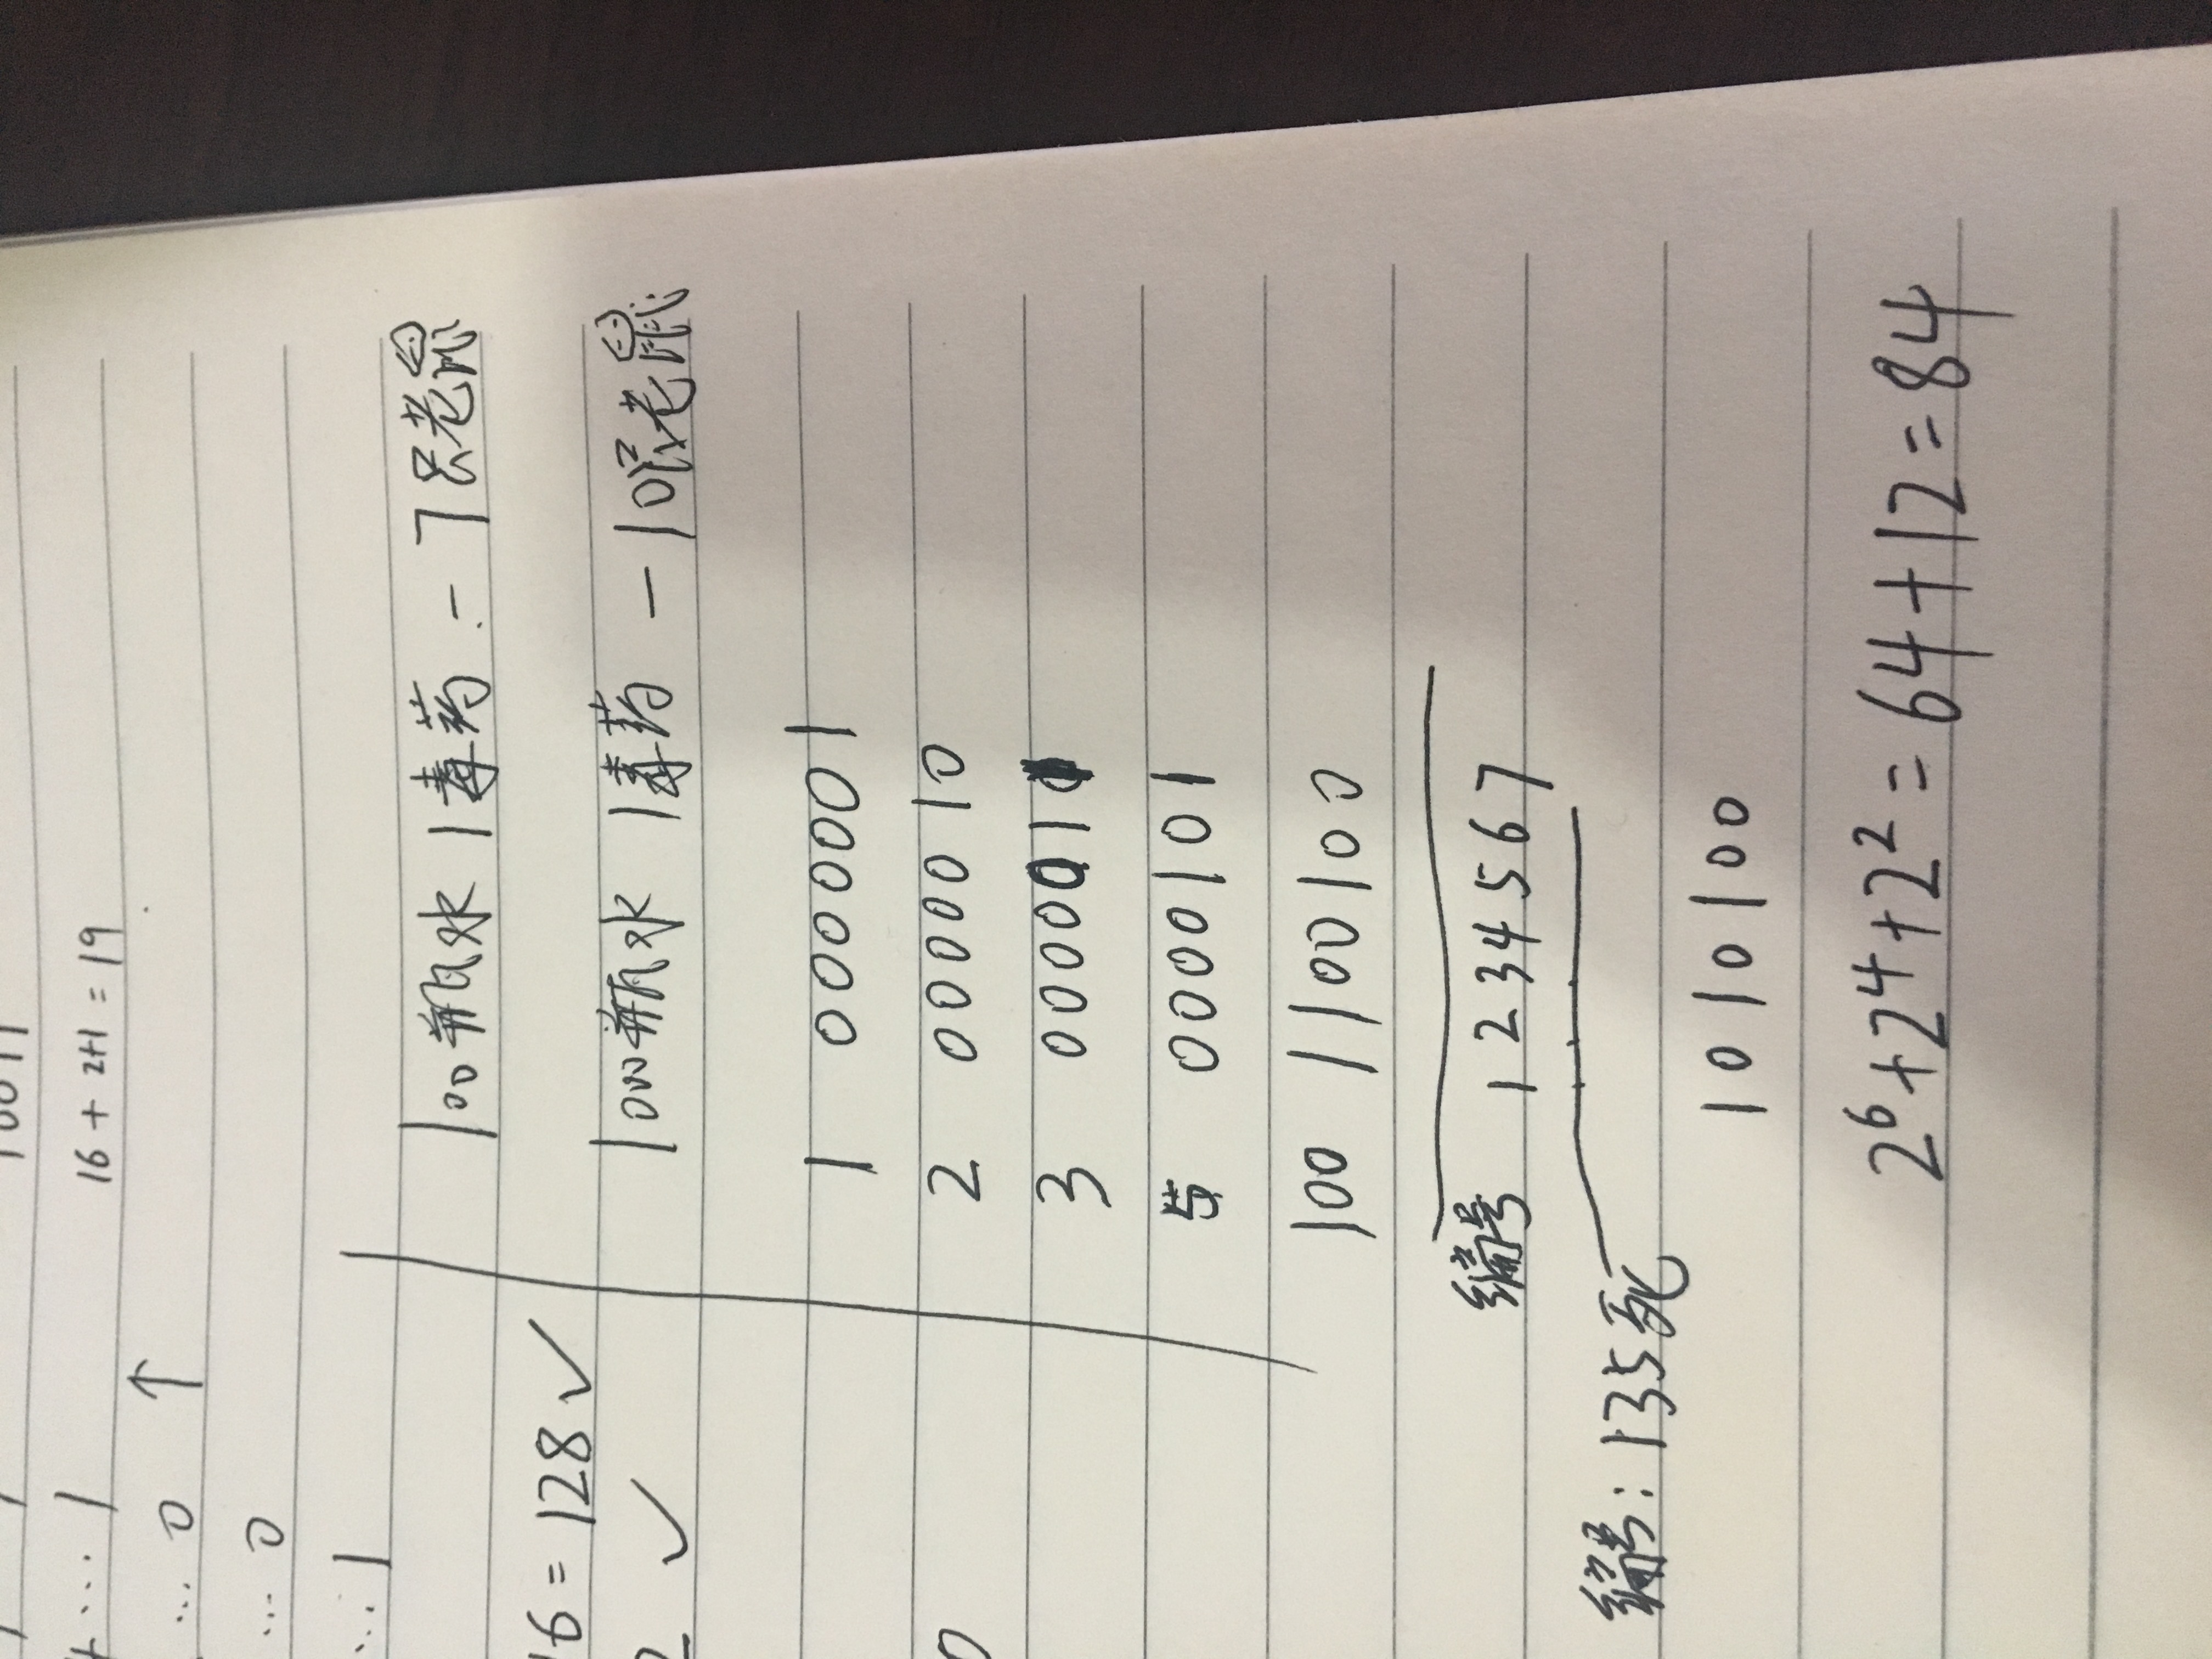 10011
16 + 2+1 = 19
... 1
... 0 ↑
... 0
... 1
100瓶水 1毒药 - 7只老鼠
6 = 128 ✓
1000瓶水 1毒药 - 10只老鼠
✓
1 0000001
2 0000010
3 0000011
5 0000101
100 1100100
编号 1234567
编号: 135死
1010100
2⁶+2⁴+2² = 64+12=84